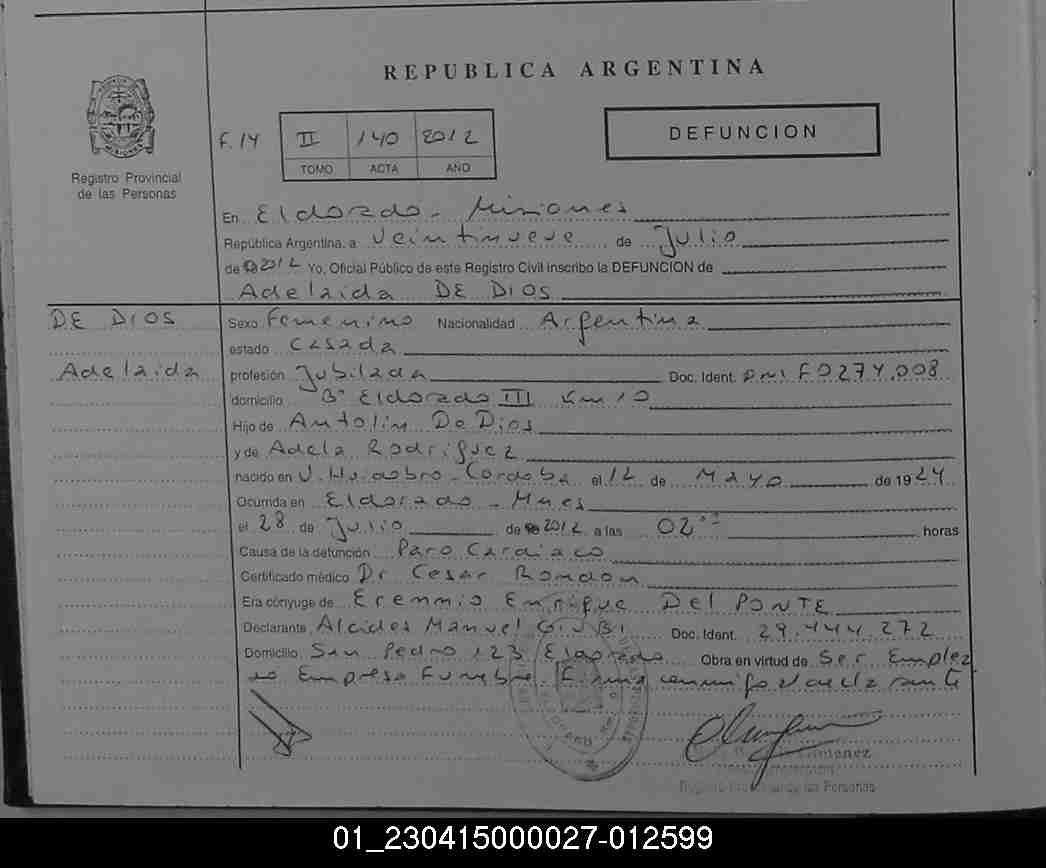 REPUBLICA ARGENTINA
F. 14 II 140 2012
TOMO ACTA AÑO
DEFUNCION
Registro Provincial
de las Personas
En Eldorado - Misiones
República Argentina, a Veintinueve de Julio
de 2012 Yo, Oficial Público de este Registro Civil inscribo la DEFUNCION de
Adelaida DE DIOS
DE DIOS
Adelaida
Sexo Femenino Nacionalidad Argentina
estado Casada
profesión Jubilada Doc. Ident. DNI F0274.008
domicilio Bº Eldorado III Km 10
Hijo de Antolin De Dios
y de Adela Rodriguez
nacido en V. Huidobro - Cordoba el 12 de Mayo de 1924
Ocurrida en Eldorado - Mnes
el 28 de Julio de 2012 a las 02 horas
Causa de la defunción Paro Cardiaco
Certificado médico Dr Cesar Rondon
Era cónyuge de Eremmio Enrique Del PONTE
Declarante Alcides Manuel GIUBI Doc. Ident. 29.444.272
Domicilio San Pedro 123 Eldorado Obra en virtud de Ser Emplea
do Empresa Funebre. Firma conmigo el declarante
Registro de las Personas
01_230415000027-012599